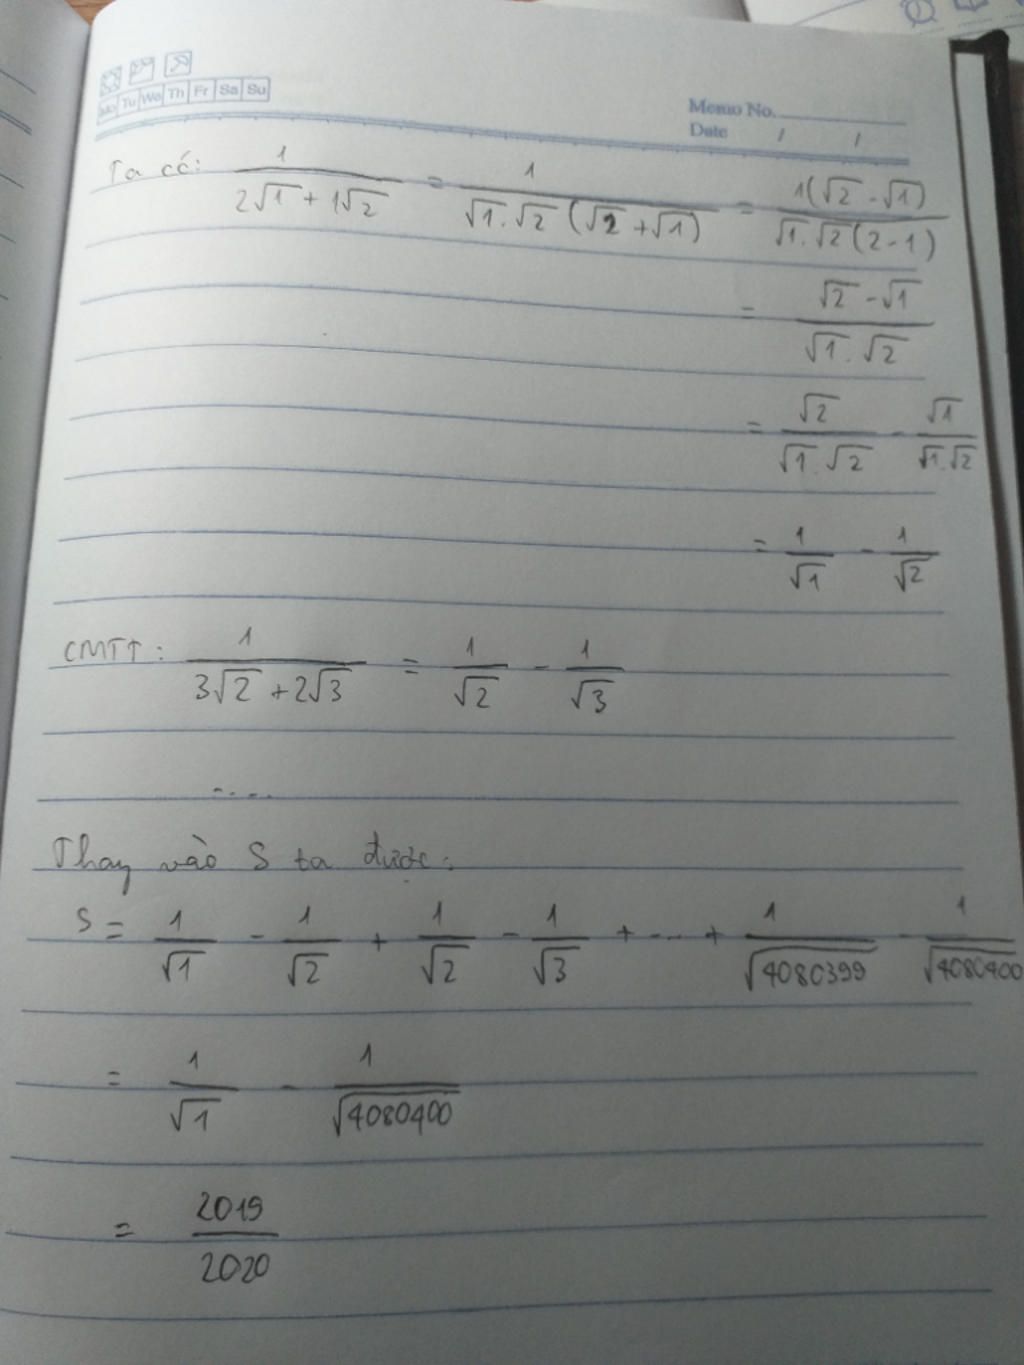 Mo Tu We Th Fr Sa Su
Memo No.
Date / /
Ta có: 1/(2√1 + 1√2) = 1/(√1.√2 (√2 + √1)) = 1(√2 - √1)/(√1.√2 (2 - 1))
= (√2 - √1)/(√1.√2)
= √2/(√1.√2) - √1/(√1.√2)
= 1/√1 - 1/√2
CMTT: 1/(3√2 + 2√3) = 1/√2 - 1/√3
....
Thay vào S ta được:
S = 1/√1 - 1/√2 + 1/√2 - 1/√3 + ... + 1/√4080399 - 1/√4080400
= 1/√1 - 1/√4080400
= 2019/2020